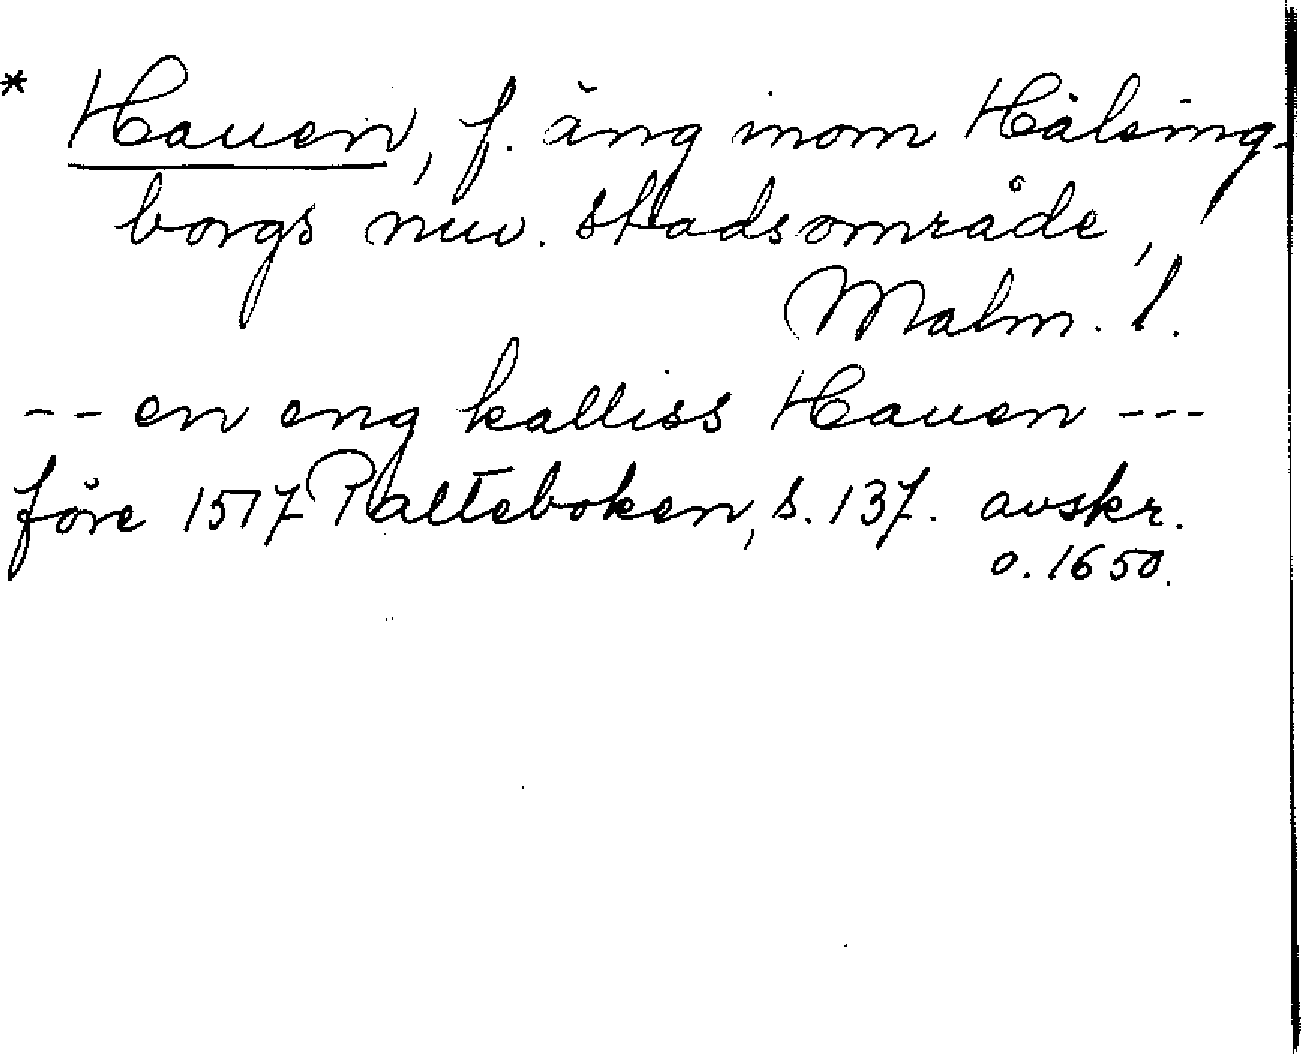 * Hauen, f. äng inom Hälsing-
borgs nuv. stadsområde,
Malm. l.
-- en eng kalliss Hauen ---
före 1517 Palteboken, s. 137. avskr.
o. 1650.